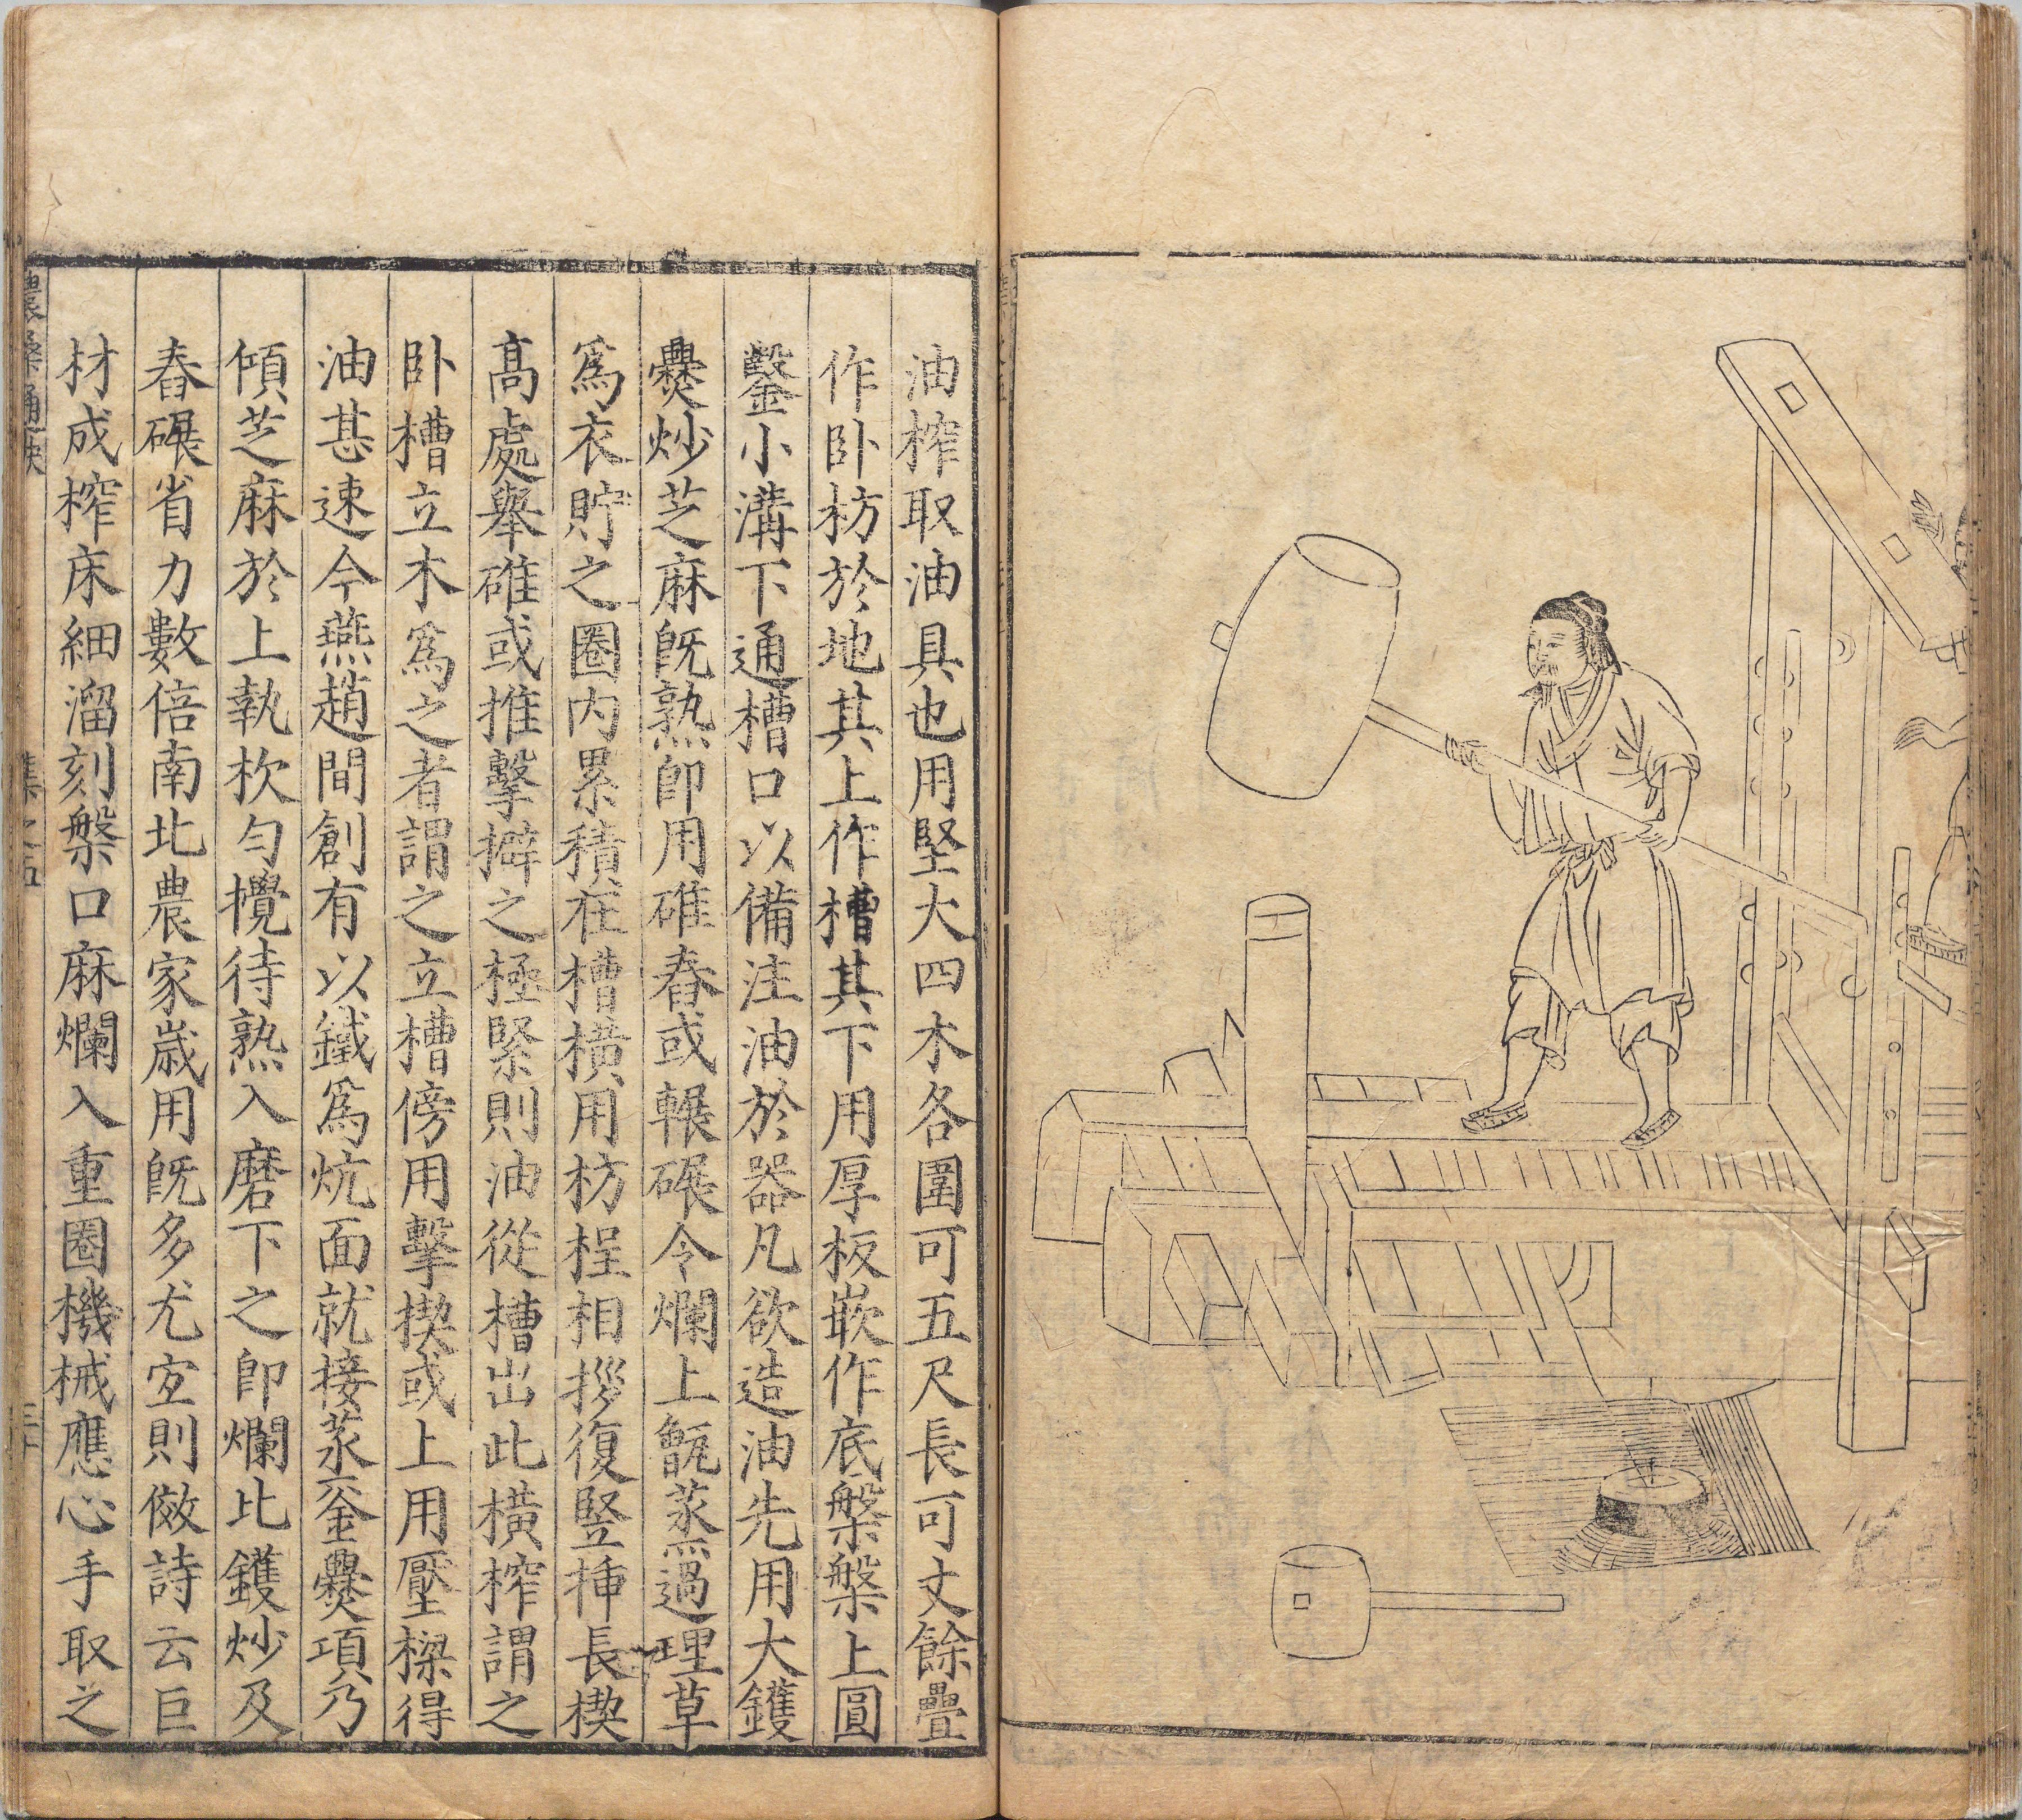 油榨取油具也用堅大四木各圍可五尺長可丈餘疊
作卧枋於地其上作槽其下用厚板嵌作底槃槃上圓
鑿小溝下通槽口以備注油於器凡欲造油先用大鑊
爨炒芝麻旣熟卽用碓舂或輾碾令爛上甑蒸過理草
爲衣貯之圈内累積在槽横用枋桯相拶復竪插長楔
髙處舉碓或推擊擗之極緊則油從槽出此橫榨謂之
卧槽立木爲之者謂之立槽傍用擊楔或上用壓樑得
油甚速今燕趙間創有以鐵爲炕面就接蒸釜爨項乃
傾芝麻於上執杴勻攪待熟入磨下之卽爛比鑊炒及
舂碾省力數倍南北農家歲用旣多尤宐則傚詩云巨
材成榨床細溜刻槃口麻爛入重圈機械應心手取之
農桑通訣
集之五